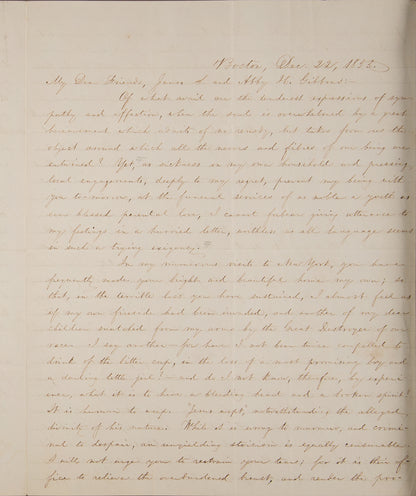 Boston, Dec. 22, 1855.
My Dear Friends, James S. and Abby H. Gibbons:—
Of what avail are the tenderest expressions of sym-
pathy and affection, when the soul is overwhelmed by a great
bereavement which admits of no remedy, but takes from us the
object around which all the nerves and fibres of our being are
entwined? Yet, as sickness in my own household and pressing
local engagements, deeply to my regret, prevent my being with
you to-morrow, at the funeral services of as noble a youth as
ever blessed parental love, I cannot forbear giving utterance to
my feelings in a hurried letter, worthless as all language seems
in such a trying exigency.
In my numerous visits to New York, you have
frequently made your bright and beautiful home my own; so
that, in the terrible loss you have sustained, I almost feel as
if my own fireside had been invaded, and another of my dear
children snatched from my arms by the Great Destroyer of our
race. I say another—for have I not been twice compelled to
drink of the bitter cup, in the loss of a most promising boy and
a darling little girl?—and do I not know, therefore, by experi-
ence, what it is to have a bleeding heart and a broken spirit?
It is human to weep. "Jesus wept," notwithstanding the alleged
divinity of his nature. While it is wrong to murmur, and crimi-
nal to despair, an unyielding stoicism is equally censurable.
I will not urge you to restrain your tears; for it is their of-
fice to relieve the overburdened breast, and render the poi-